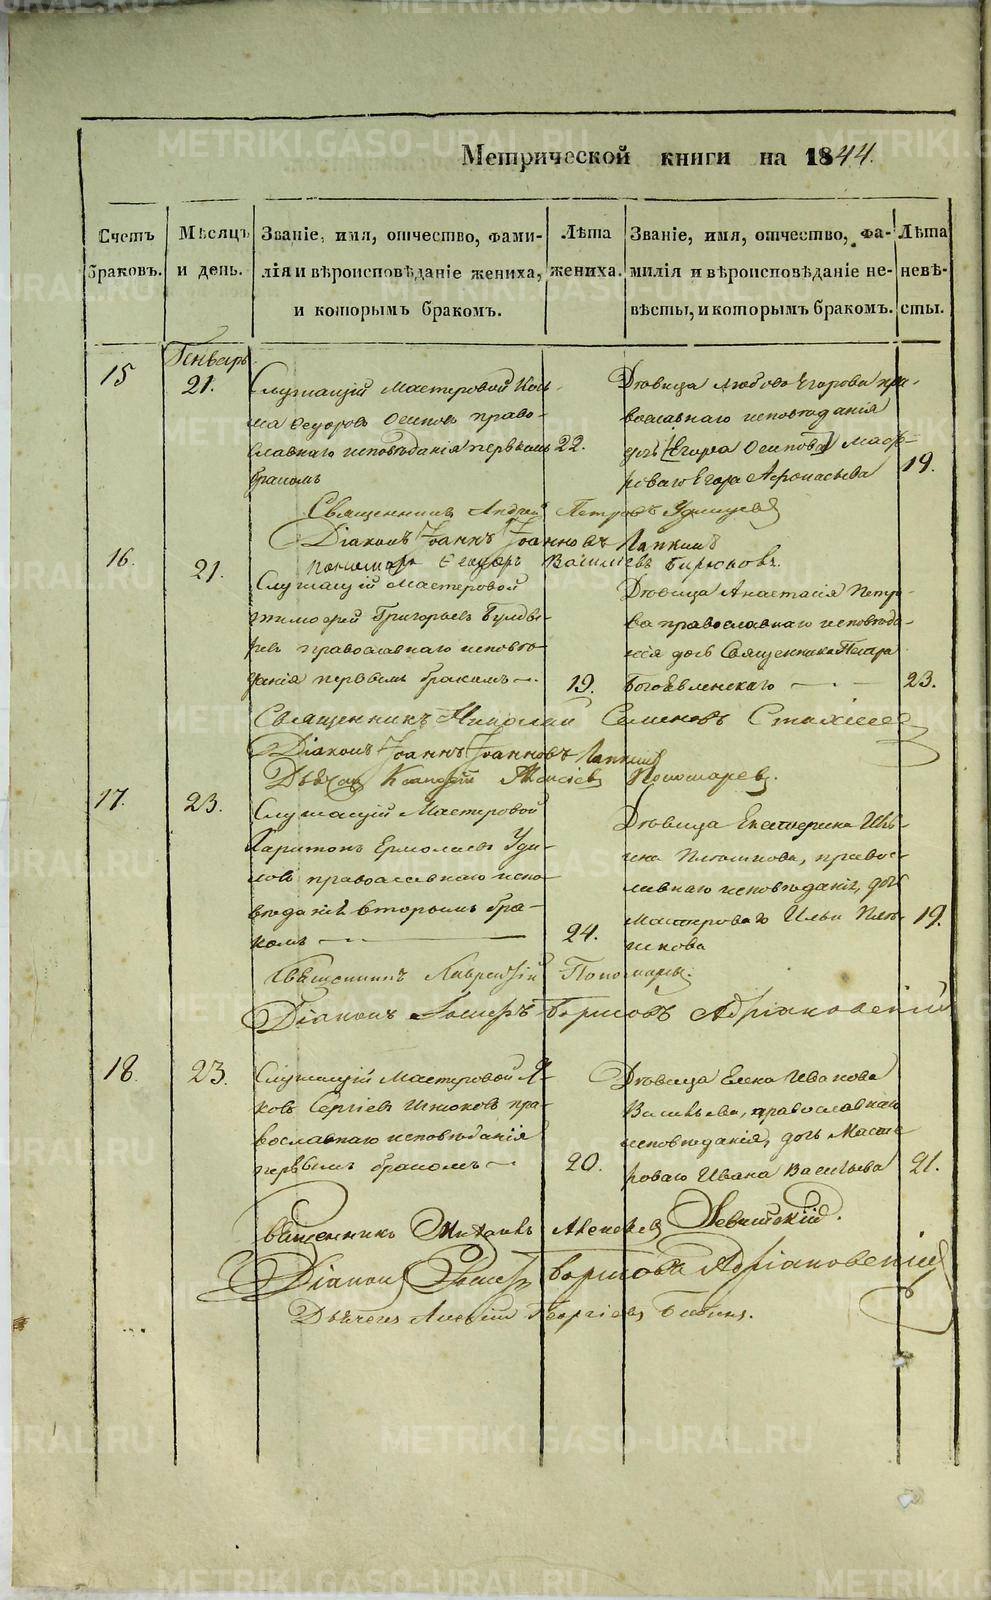 Метрической книги на 1844.
Счетъ браковъ.
Мѣсяцъ и день.
Званіе, имя, отчество, фами-
лія и вѣроисповѣданіе жениха,
и которымъ бракомъ.
Лѣта жениха.
Званіе, имя, отчество, фа-
милія и вѣроисповѣданіе не-
вѣсты, и которымъ бракомъ.
Лѣта невѣ-
сты.
Генварь
15
21.
Служащій Мастеровой Козь
ма Ѳедоровъ Осиповъ право-
славнаго исповѣданія первымъ
бракомъ
22.
Дѣвица Любовь Егорова пра-
вославнаго исповѣданія
дочь (Егора Осипова) масте-
роваго Егора Афонасьева
19.
Священникъ Андрей Петровъ
Діаконъ Іоаннъ Іоанновъ Лапкинъ
Пономарь Ѳедоръ Васильевъ Бирюковъ.
16.
21.
Служащій Мастеровой
Тимофей Григорьевъ
православнаго исповѣ-
данія первымъ бракомъ —.
19.
Дѣвица Анастасія Петро-
ва православнаго исповѣда-
нія дочь Священника Петра
Богоявленскаго — —
23.
Священникъ Николай Семеновъ
Діаконъ Іоаннъ Іоанновъ Лапкинъ
Дьячокъ Алексіевъ Пономаревъ.
17.
23.
Служащій Мастеровой
Харитонъ Ермолаевъ Уди-
ловъ православнаго испо-
вѣданія вторымъ бра-
комъ —
24.
Дѣвица Екатерина Иль-
ина Плюшкова, правос-
лавнаго исповѣданія, дочь
Мастероваго Ильи Плю-
шкова
19.
Священникъ Лаврентій Пономаревъ.
Діаконъ Іосифъ Борисовъ Адріановскій
18.
23.
Служащій Мастеровой Я-
ковъ Сергіевъ пра-
вославнаго исповѣданія
первымъ бракомъ —
20.
Дѣвица Елена Иванова
Васильева, православнаго
исповѣданія, дочь Масте
роваго Ивана Васильева
21.
Священникъ Михаилъ Алексѣевъ Левитскій.
Діаконъ Іосифъ Борисовъ Адріановскій
Дьячекъ Алексѣй Георгіевъ Бибинъ.
METRIKI.GASO-URAL.RU